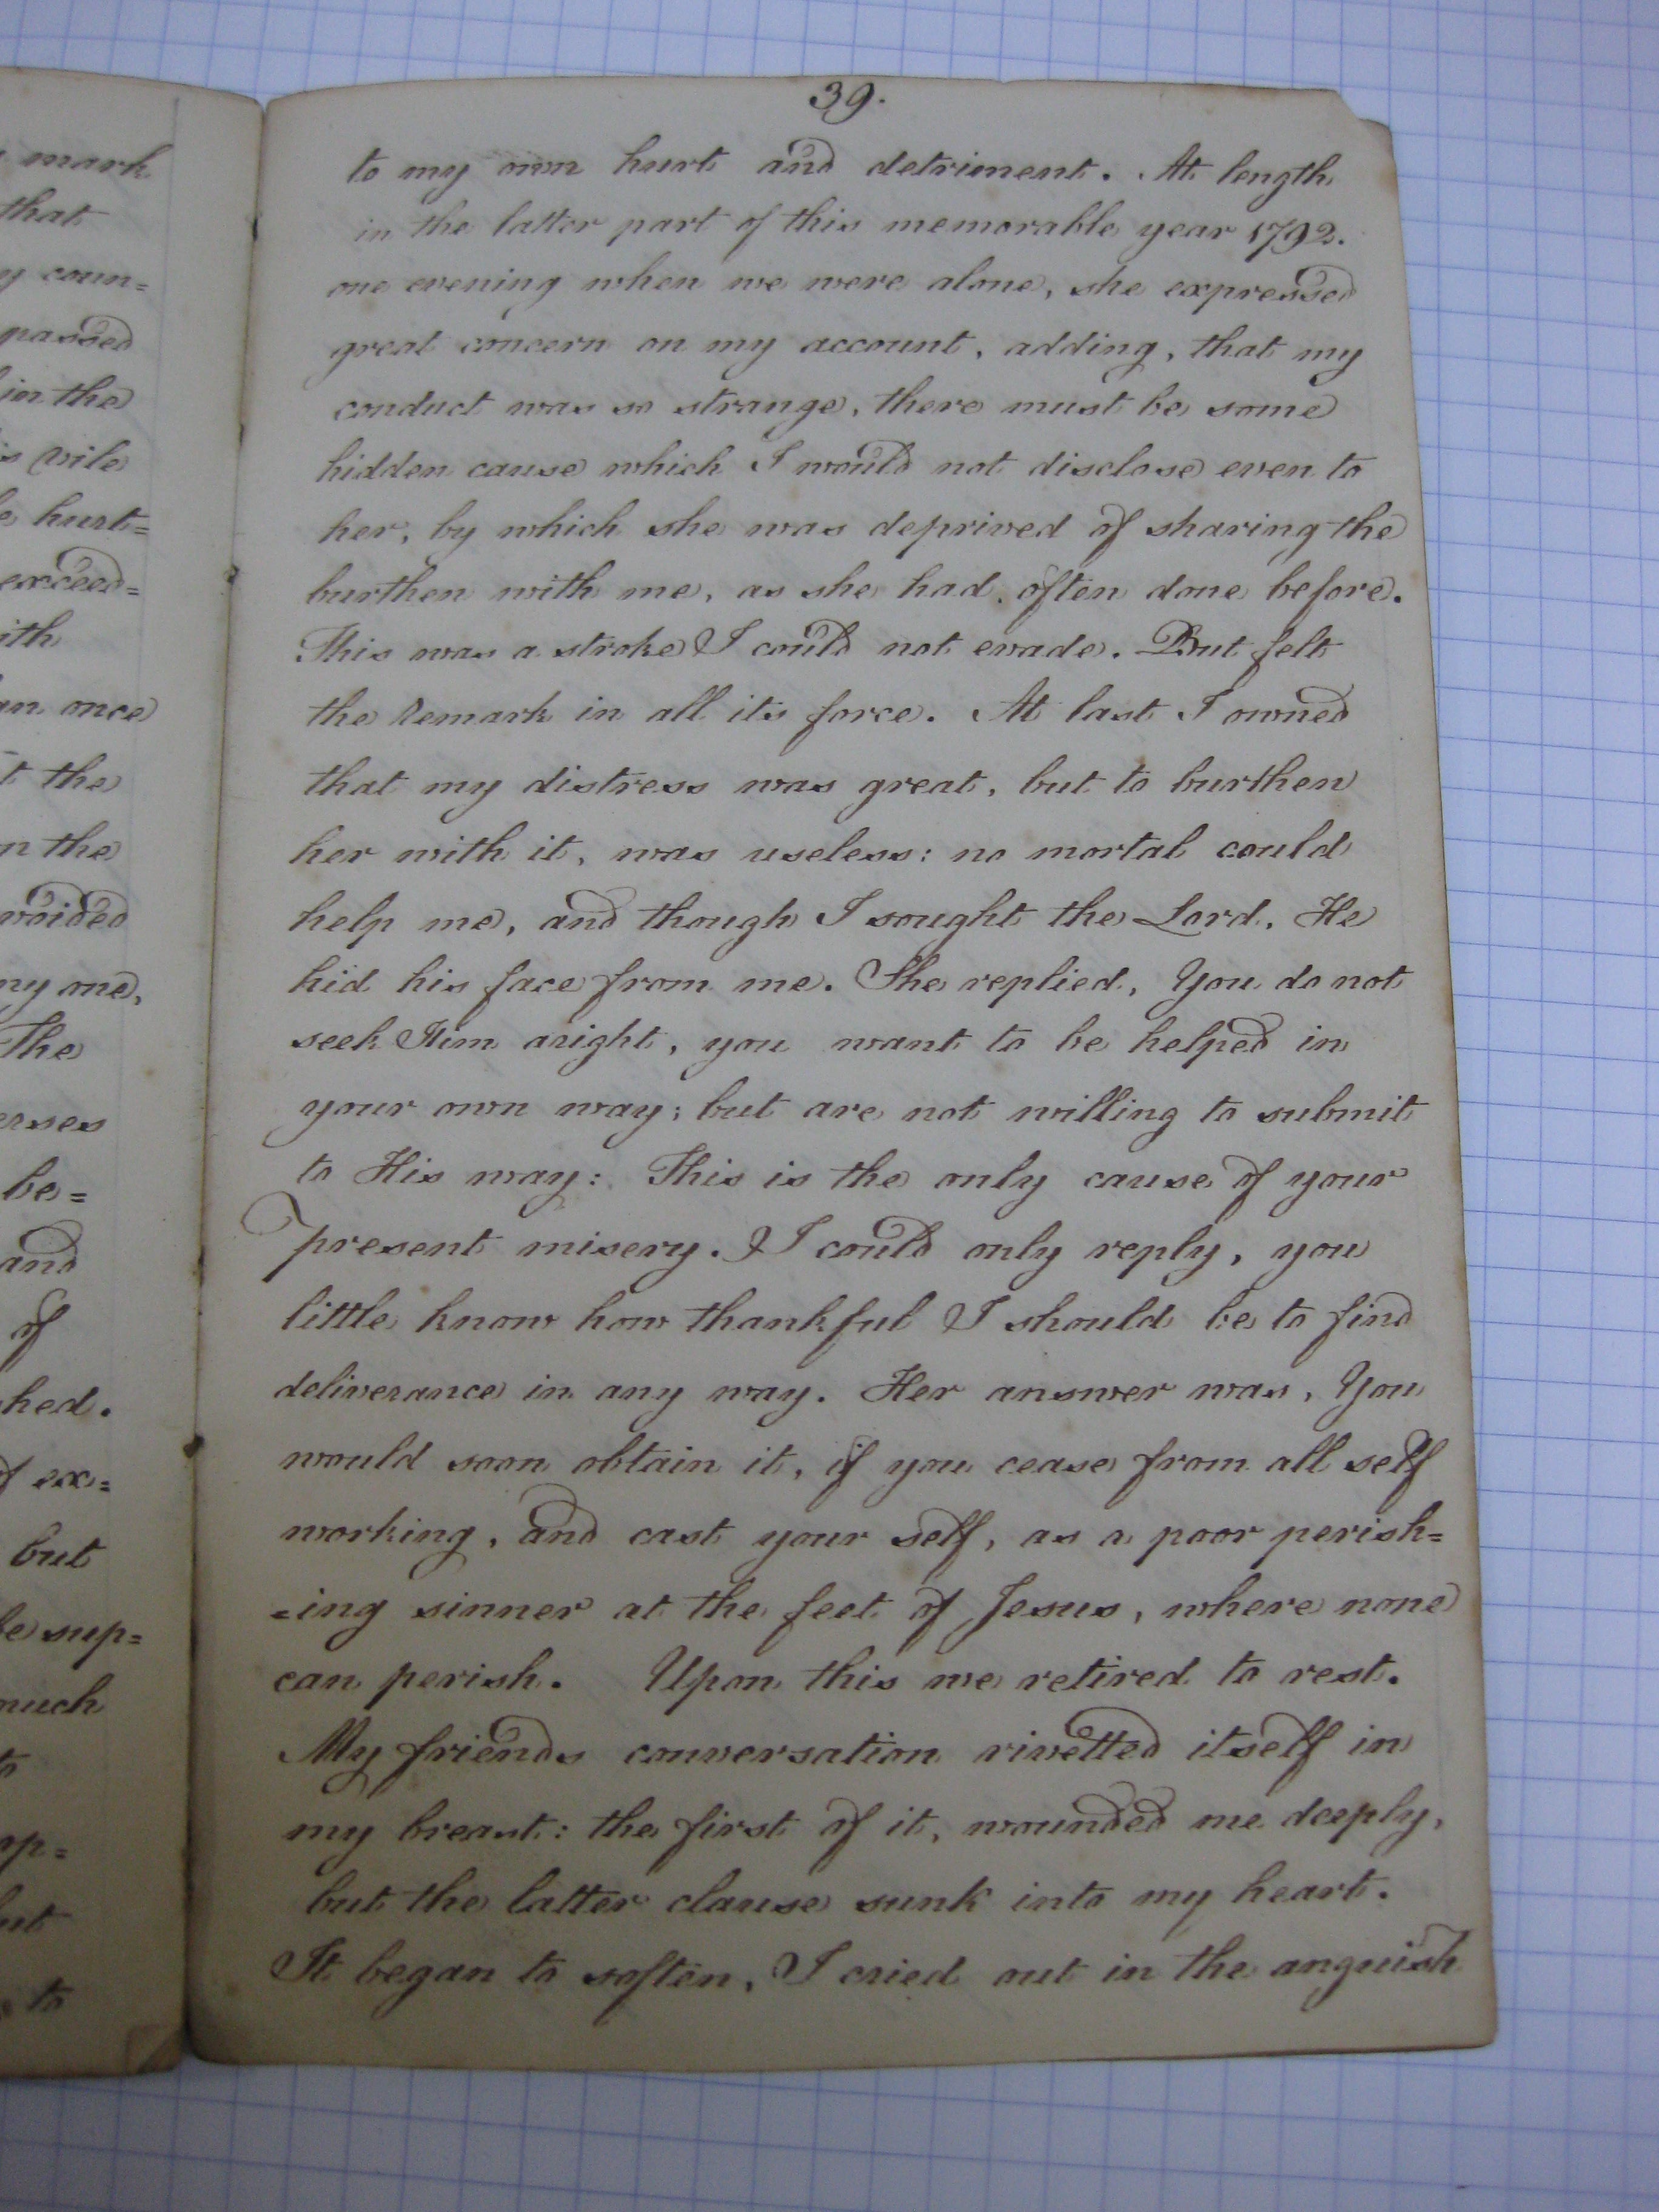 mark
that
coun=
passed
in the
vile
hurt=
exceed=
ith
once
the
the
voided
my one,
The
erses
be=
and
of
hed.
ex=
but
be sup=
much
to
ap=
ut
to
39.
to my own hurt and detriment. At length
in the latter part of this memorable year 1792.
one evening when we were alone, she expressed
great concern on my account, adding, that my
conduct was so strange, there must be some
hidden cause which I would not disclose even to
her, by which she was deprived of sharing the
burthen with me, as she had often done before.
This was a stroke I could not evade. But felt
the Remark in all its force. At last I owned
that my distress was great, but to burthen
her with it, was useless: no mortal could
help me, and though I sought the Lord, He
hid his face from me. She replied, You do not
seek Him aright, you want to be helped in
your own way; but are not willing to submit
to His way: This is the only cause of your
present misery. I could only reply, you
little know how thankful I should be to find
deliverance in any way. Her answer was, You
would soon obtain it, if you cease from all self
working, and cast your self, as a poor perish=
=ing sinner at the feet of Jesus, where none
can perish. Upon this we retired to rest.
My friends conversation rivetted itself in
my breast: the first of it, wounded me deeply,
but the latter clause sunk into my heart.
It began to soften, I cried out in the anguish